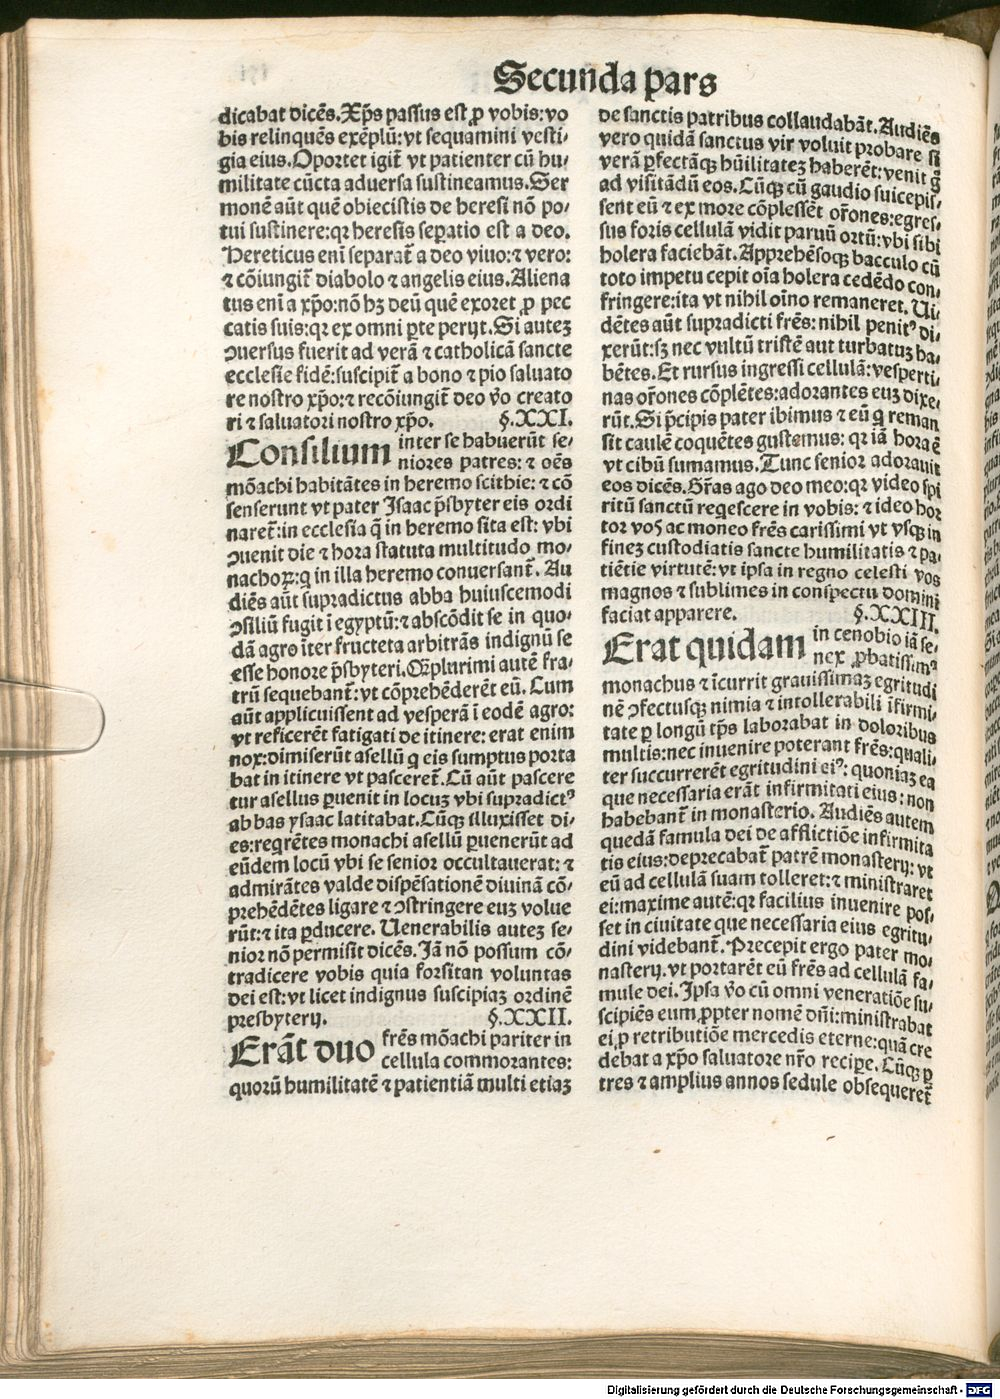 Secunda pars
dicabat dicēs. Xp̄s passus est ꝓ vobis: vo
bis relinquēs exēplū: vt sequamini vesti⸗
gia eius. Oportet igit̄ vt patienter cū hu⸗
militate cūcta aduersa sustineamus. Ser
monē aūt quē obiecistis de heresi nō po⸗
tui sustinere: qꝛ heresis seꝑatio est a deo.
Hereticus eni̅ separat̄ a deo viuo: ⁊ vero:
⁊ cōiungit̄ diabolo ⁊ angelis eius. Aliena
tus eni̅ a xp̄o: nō hꝫ deū quē exoret ꝓ pec
catis suis: qꝛ ex omni ꝑte perijt. Si auteꝫ
ꝯuersus fuerit ad verā ⁊ catholicā sancte
ecclesie fidē: suscipit̄ a bono ⁊ pio saluato
re nostro xp̄o: ⁊ recōiungit̄ deo v̄o creato
ri ⁊ saluatori nostro xp̄o. §. XXI.
Consilium inter se habuerūt se⸗
niores patres: ⁊ oēs
mōachi habitātes in heremo scithie: ⁊ cō
senserunt vt pater Isaac p̄sbyter eis ordi
naret̄: in ecclesia q̄ in heremo sita est: vbi
ꝯuenit die ⁊ hora statuta multitudo mo⸗
nachoꝝ: q̇ in illa heremo conuersant̄. Au
diēs aūt supradictus abba huiuscemodi
ꝯsiliū fugit ī egyptū: ⁊ abscōdit se in quo⸗
dā agro īter fructeta arbitrās indignū se
esse honore p̄sbyteri. Cōplurimi autē fra⸗
trū sequebant̄: vt cōprehēderēt eū. Cum
aūt applicuissent ad vesperā ī eodē agro:
vt reficerēt fatigati de itinere: erat enim
nox: dimiserūt asellū q̇ eis sumptus porta
bat in itinere vt pasceret̄. Cū aūt pascere
tur asellus ꝑuenit in locuꝫ vbi supradictꝰ
abbas ysaac latitabat. Cūqꝫ illuxisset di⸗
es: reqrētes monachi asellū ꝑuenerūt ad
eūdem locū vbi se senior occultauerat: ⁊
admirātes valde dispēsationē diuinā cō⸗
prehēdētes ligare ⁊ ꝯstringere euꝫ volue
rūt: ⁊ ita ꝑducere. Uenerabilis auteꝫ se⸗
nior nō permisit dicēs. Iā nō possum cō⸗
tradicere vobis quia forsitan voluntas
dei est: vt licet indignus suscipiaꝫ ordinē
presbyterij. §. XXII.
Erāt duo frēs mōachi pariter in
cellula commorantes:
quorū humilitatē ⁊ patientiā multi etiaꝫ
de sanctis patribus collaudabāt. Audiēs
vero quidā sanctus vir voluit probare si
verā ꝑfectāqꝫ hūilitateꝫ haberēt: venit ḡ
ad visitādū eos. Cūqꝫ cū gaudio suscepis⸗
sent eū ⁊ ex more cōplessēt or̄ones: egres⸗
sus foris cellulā vidit paruū ortū: vbi sibi
holera faciebāt. Apprehēsoqꝫ bacculo cū
toto impetu cepit oīa holera cedēdo con⸗
fringere: ita vt nihil oīno remaneret. Ui⸗
dētes aūt supradicti frēs: nihil penitꝰ di⸗
xerūt: sꝫ nec vultū tristē aut turbatuꝫ ha⸗
bētes. Et rursus ingressi cellulā: vesperti⸗
nas or̄ones cōplētes: adorantes euꝫ dixe⸗
rūt. Si p̄cipis pater ibimus ⁊ eū q̇ reman
sit caulē coquētes gustemus: qꝛ iā hora ē
vt cibū sumamus. Tunc senior adorauit
eos dicēs. Gr̄as ago deo meo: qꝛ video spi
ritū sanctū reqescere in vobis: ⁊ ideo hor
tor vos ac moneo frēs carissimi vt vsqꝫ in
fineꝫ custodiatis sancte humilitatis ⁊ pa⸗
tiētie virtutē: vt ipsa in regno celesti vos
magnos ⁊ sublimes in conspectu domini
faciat apparere. §. XXIII.
Erat quidam in cenobio iā se⸗
nex ꝓbatissimꝰ
monachus ⁊ īcurrit grauissimaꝫ egritudi
nē ꝯfectusqꝫ nimia ⁊ intollerabili īfirmi⸗
tate ꝑ longū tp̄s laborabat in doloribus
multis: nec inuenire poterant frēs: quali⸗
ter succurrerēt egritudini eiꝰ: quoniaꝫ ea
que necessaria erāt infirmitati eius: non
habebant̄ in monasterio. Audiēs autem
quedā famula dei de afflictiōe infirmita
tis eius: deprecabat̄ patrē monasterij: vt
eū ad cellulā suam tolleret: ⁊ ministraret
ei: maxime autē: qꝛ facilius inuenire pos⸗
set in ciuitate que necessaria eius egritu⸗
dini videbant̄. Precepit ergo pater mo⸗
nasterij. vt portarēt eū frēs ad cellulā fa⸗
mule dei. Ipsa v̄o cū omni veneratiōe su⸗
scipiēs eum ꝓpter nomē dn̄i: ministrabat
ei ꝓ retributiōe mercedis eterne: quā cre
debat a xp̄o saluatore nr̄o reciꝑe. Cūqꝫ ꝑ
tres ⁊ amplius annos sedule obsequeret̄
Digitalisierung gefördert durch die Deutsche Forschungsgemeinschaft - DFG